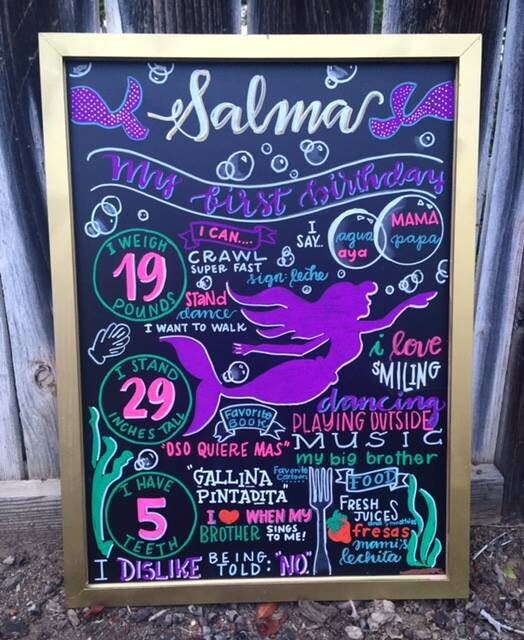 Salma
my first birthday
I WEIGH
19
POUNDS
I CAN....
CRAWL
SUPER FAST
sign: leche
STAND
dance
I WANT TO WALK
I
SAY..
agua
aya
MAMA
papa
I STAND
29
INCHES TALL
i love
SMILING
dancing
PLAYING OUTSIDE
MUSIC
my big brother
Favorite
BOOK
"OSO QUIERE MAS"
I HAVE
5
TEETH
Favorite
Cartoon
"GALLINA
PINTADITA"
I ❤ WHEN MY
BROTHER SINGS
TO ME!
FOOD
FRESH
JUICES
and smoothies
fresas
mami's
lechita
I DISLIKE BEING
TOLD: "NO."